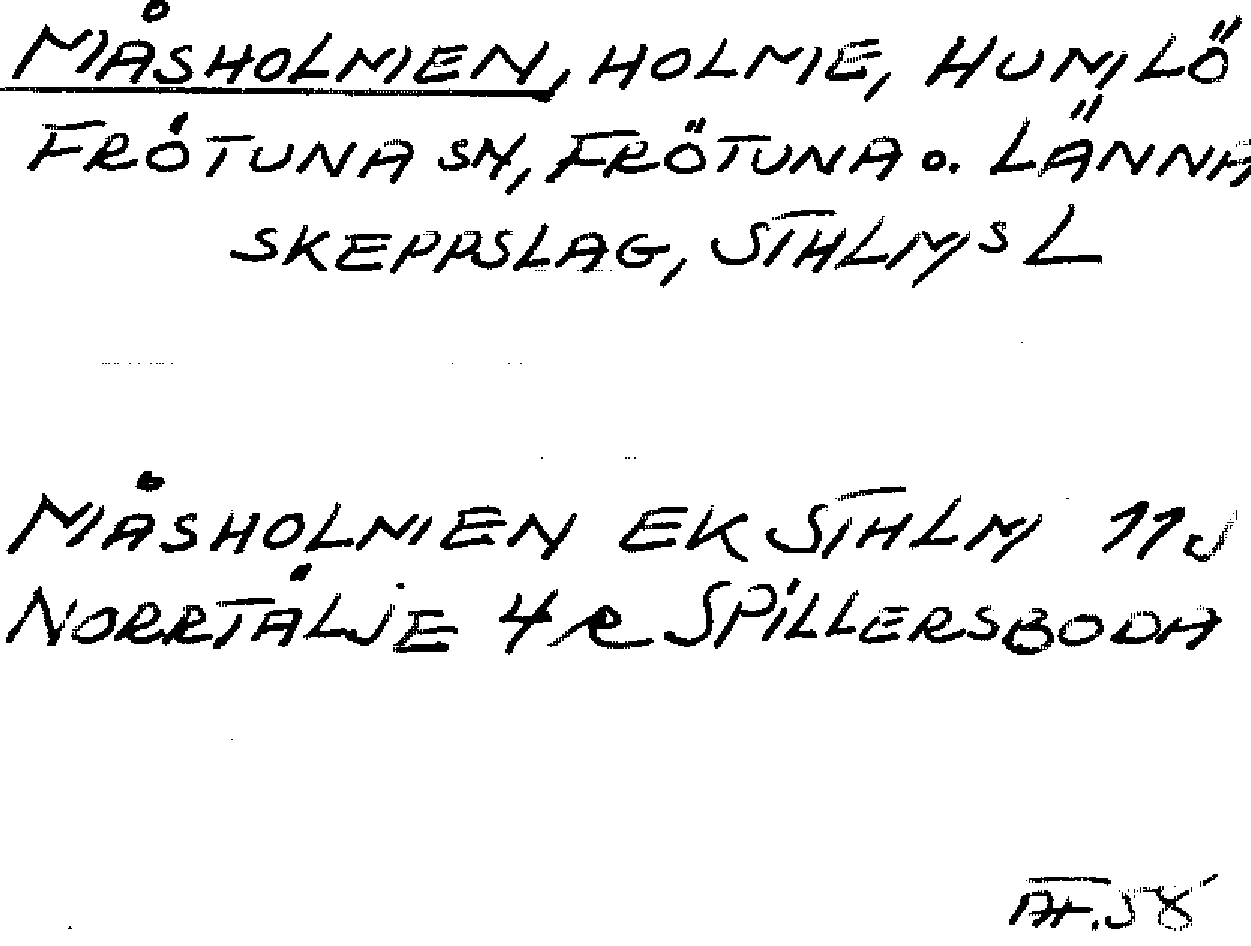 MÅSHOLMEN, HOLME, HUMLÖ
FRÖTUNA SN, FRÖTUNA o. LÄNNA
SKEPPSLAG, STHLMS L
MÅSHOLMEN EK STHLM 11J
NORRTÄLJE 4
SPILLERSBODA